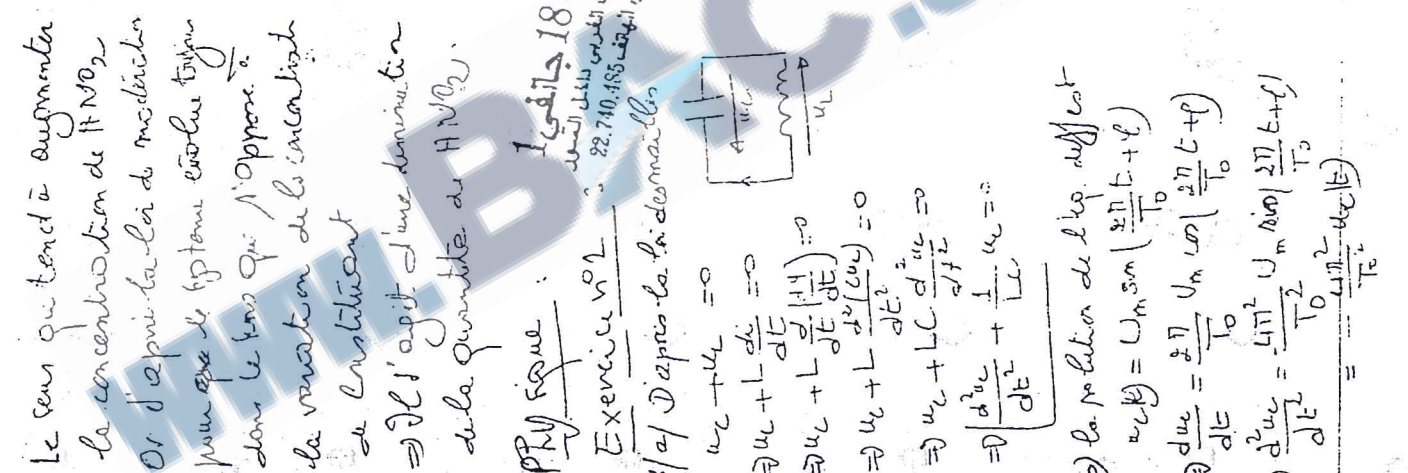 Le sens qui tend à augmenter
la concentration de HNO2
Or d'après la loi de modération
pour que le système évolue
dans le sens qui s'oppose à
la variation de la concentration
de constituant
=> Il s'agit d'une diminution
de la quantité de HNO2.
Physique :
Exercice n°2 :
18 جانفي
22.740.485
1/a/ D'après la loi des mailles
uc + uL = 0
=> uc + L di/dt = 0
=> uc + L d/dt (dq/dt) = 0
=> uc + L d²(Cuc)/dt² = 0
=> uc + LC d²uc/dt² = 0
=> d²uc/dt² + 1/LC uc = 0
uc
uL
la solution de l'éq. diff est
uc(t) = Um sin(2π/T0 t + φ)
duc/dt = 2π/T0 Um cos(2π/T0 t + φ)
d²uc/dt² = - 4π²/T0² Um sin(2π/T0 t + φ)
= - 4π²/T0² uc(t)
www.BAC.